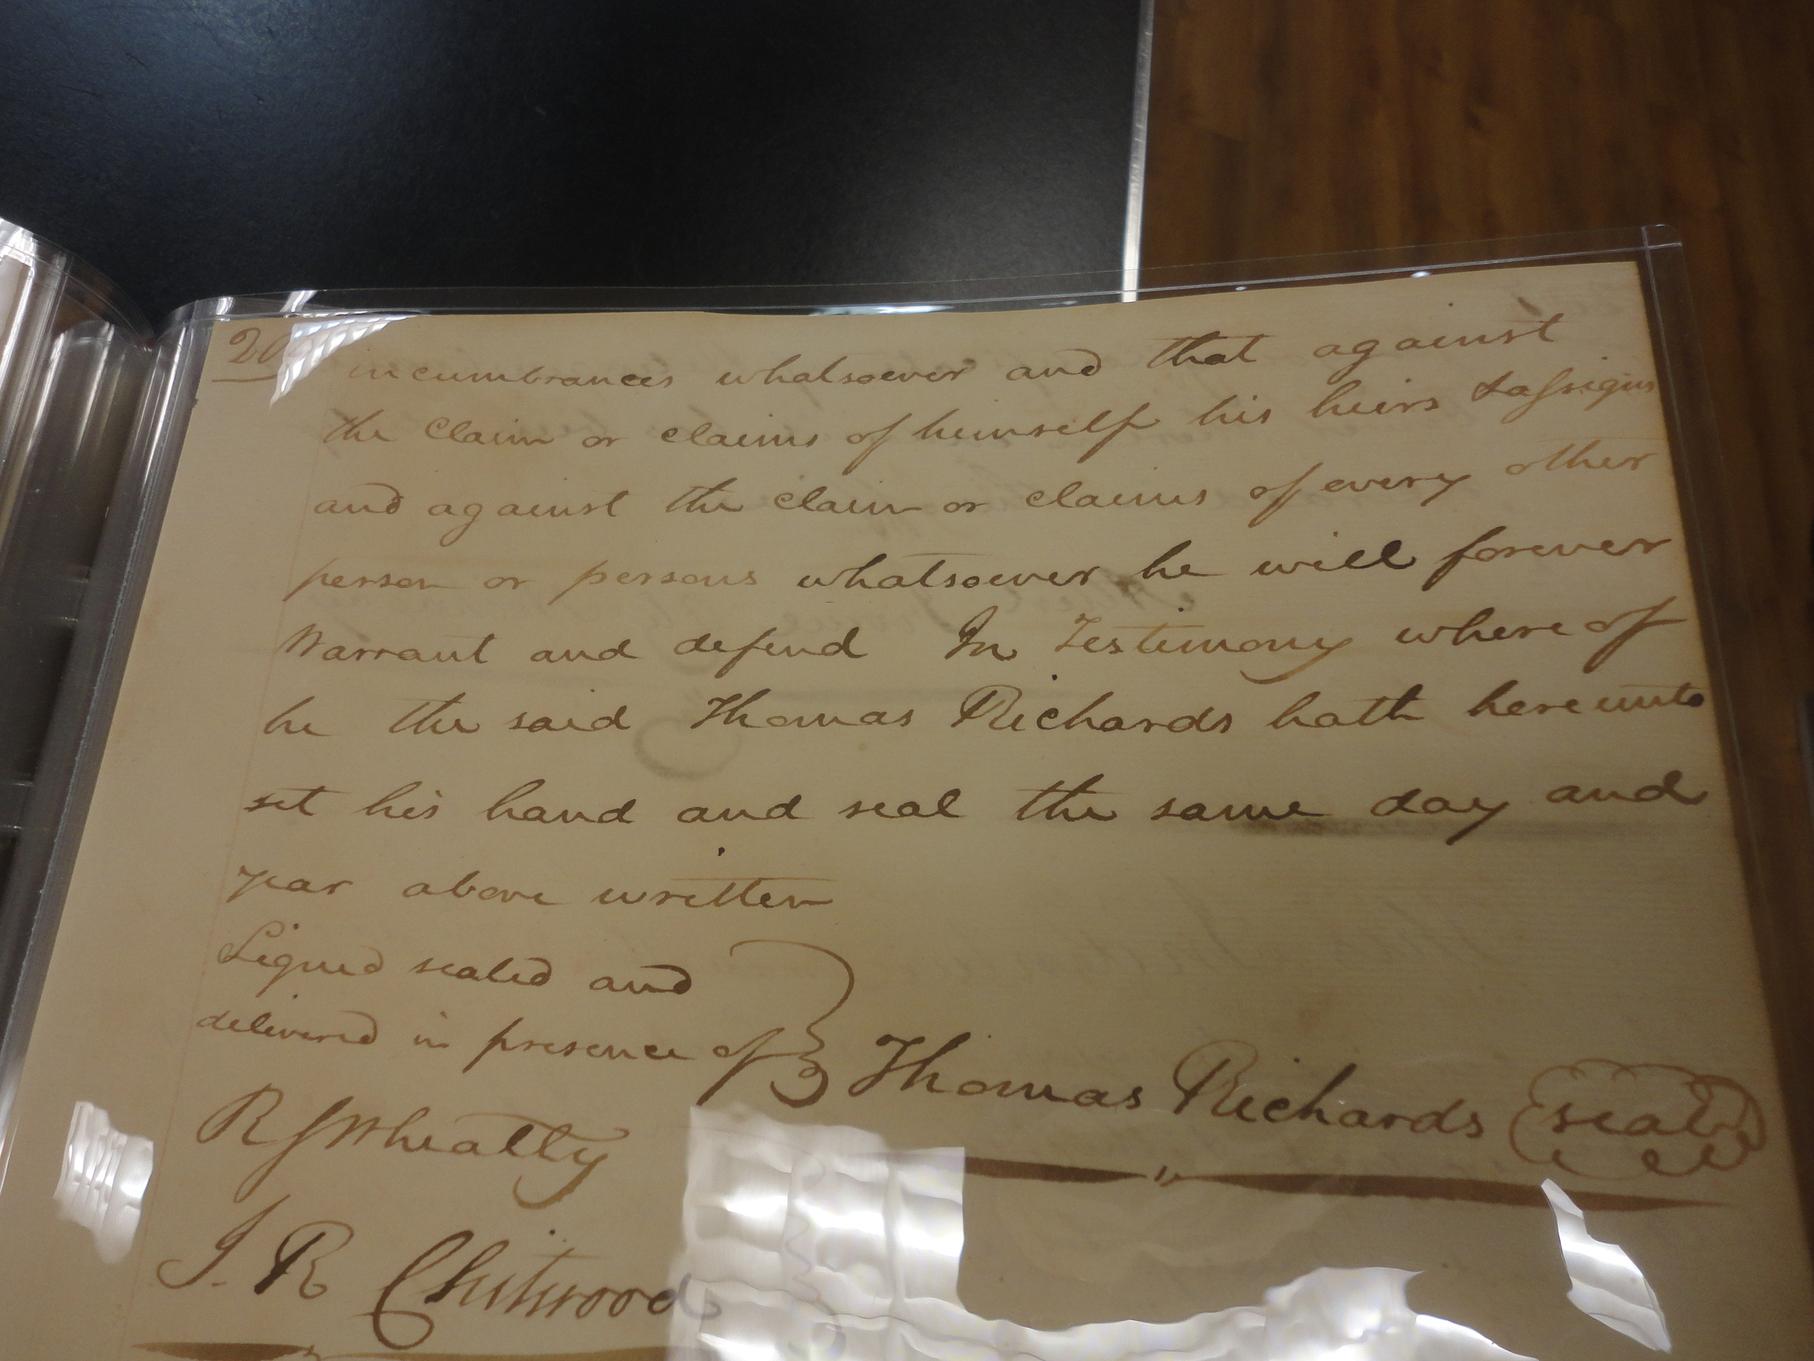 20
incumbrances whatsoever and that against
the Claim or claims of himself his heirs & assigns
and against the claim or claims of every other
person or persons whatsoever he will forever
Warrant and defend In Testimony whereof
he the said Thomas Richards hath hereunto
set his hand and seal the same day and
year above written
Signed sealed and
delivered in presence of } Thomas Richards seal
R J Wheatly
J. R Chitwood